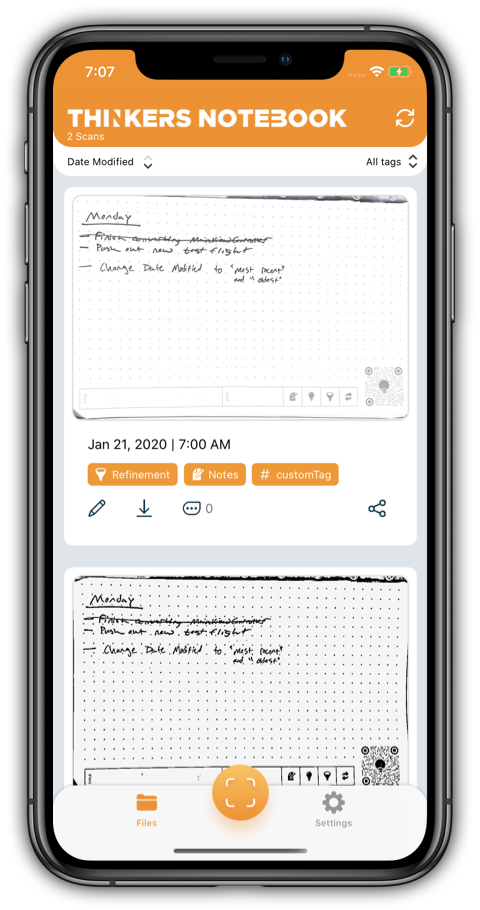 7:07
THINKERS NOTEBOOK
2 Scans
Date Modified
All tags
Monday
— Finish converting MainViewController
— Push out new test flight
— Change Date Modified to "most recent"
and "oldest"
Jan 21, 2020 | 7:00 AM
Refinement
Notes
# customTag
0
Monday
— Finish converting MainViewController
— Push out new test flight
— Change Date Modified to "most recent"
and "oldest"
TITLE
Files
Settings